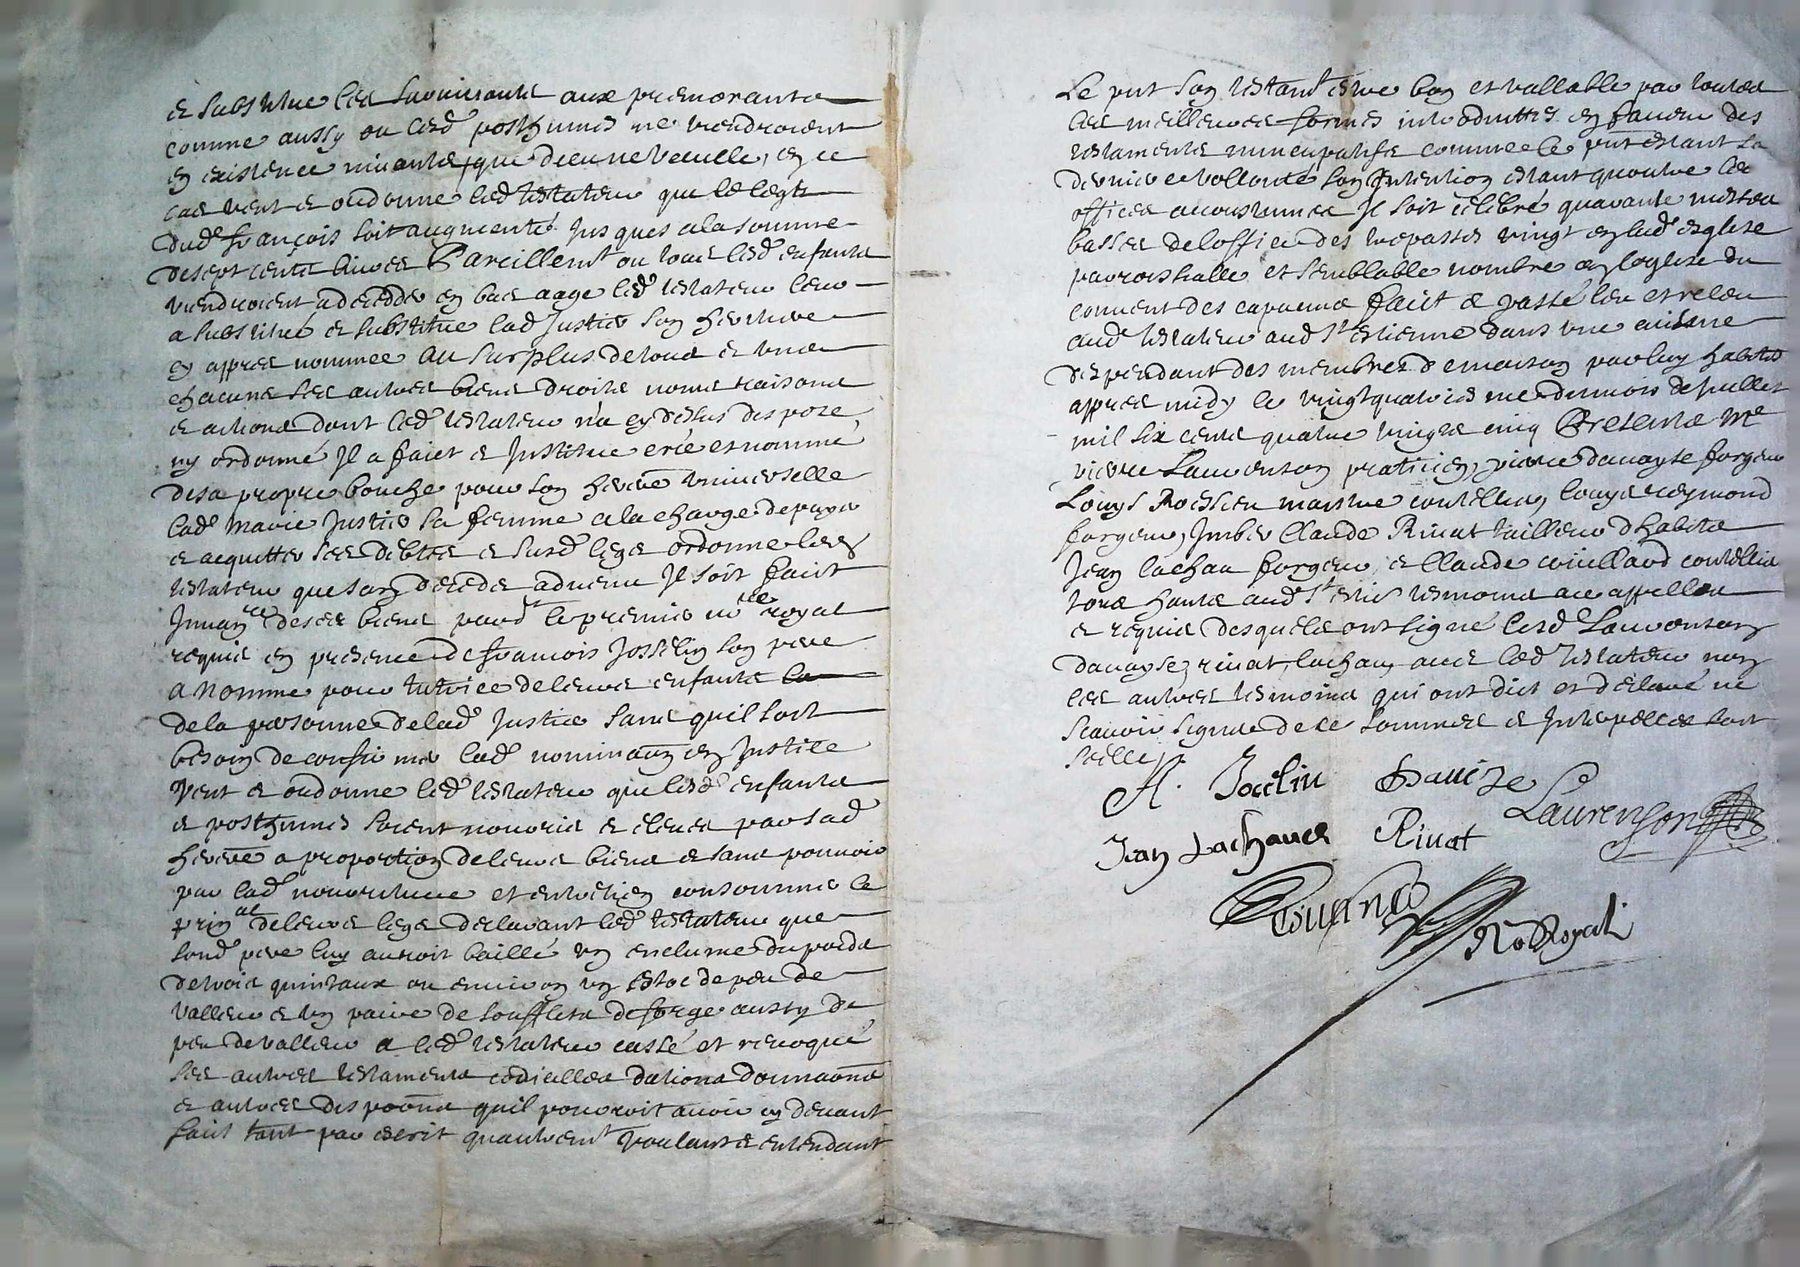 et substitue les survivants aux premorants
comme aussy ou lesd posthumes ne viendroient
en existence vivants, que dieu ne veuille, en ce
cas veut et ordonne led testateur que le legt
dud françois soit augmenté Jusques a la somme
de sept cents livres Pareillemt ou tous lesd enfants
viendroient a decedder en bas aage led testateur leur
a substitué et substitue lad Justier son heritiere
cy appres nommee Au surplus de tous et uns
chacuns ses autres biens droits noms raisons
et actions dont led testateur n'a cy desus dispozé
ny ordonné Jl a faict et Justitue cree et nommé
de sa propre bouche pour son herere universelle
lad Marie Justier sa femme a la charge de payer
et acquitter ses debtes et susd legs ordonne led
testateur que son decede advenu Jl soit faict
Jnvanre de ses biens pard le premier nore royal
requis en presence de francois Josselin son pere
a nommé pour tutrice de leurs enfants
de la personne de lad Justier sans quil soit
besoin de confirmer lad nominaon en Justice
Veut et ordonne led testateur que lesd enfants
et posthumes soient nourris et eleves par sad
herere a proportion de leurs biens et sans pouvoir
par lad nourriture et entretien consommer le
prinal de leurs legs declarant led testateur que
sond pere luy auroit baillé un enclume du poids
de trois quintaux ou environ un estoc de peu de
valleur et un paire de soufflets de forge aussy de
peu de valleur a led testateur cassé et revoqué
ses autres testaments codicilles dations donnaons
et autres dispoons quil pourroit avoir cy devant
faict tant par escrit quautremt voulant et entendant
Le put son testamt estre bon et vallable par toutes
les meilleures formes introduittes en faveur des
testaments nuncupatifs comme le put estant sa
derniere vollonté son Jntention estant quoutre les
offices accoustumes Jl soit celebré quarante messes
basses de loffice des trepassés vingt en lad esglise
parroishalle et semblable nombre en leglise du
couvent des capucins faict et passé leu et releu
aud testateur aud St estienne dans une cuisine
despendant des membres de maison par luy habité
appres midy le vingtquatriesme du mois de Juillet
mil six cents quatre vingts cinq Presents Me
pierre Laurenson praticien, pierre davayse forgeur
Louys Roissieu maistre coutellier, louys reymond
forgeur, Jmber Claude Rivat tailleur dhabits
Jean lachau forgeur, et Claude couillard coutellier
tous hants aud St estie tesmoins a ce appelles
et requis desquels ont signé lesd Laurenson
davayse, rivat, lachau, avec led testateur non
les autres tesmoins qui ont dict et declaré ne
scavoir signer de ce sommes et Jnterpelles soit
scellé
A. Jocelin Davize
Laurenson
Jean Lachaues Rivat
No Royal